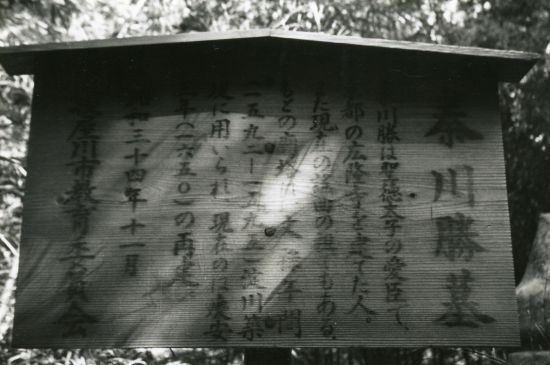 秦川勝墓
川勝は聖徳太子の愛臣で、
京都の広隆寺を建てた人。
また現在の 楽の祖でもある。
もとの 文 年間
(一五九二—一五九五)淀川築
堤に用いられ、現在のは慶安
三年(一六五〇)の再建。
昭和三十四年十一月
寝屋川市教育委員会